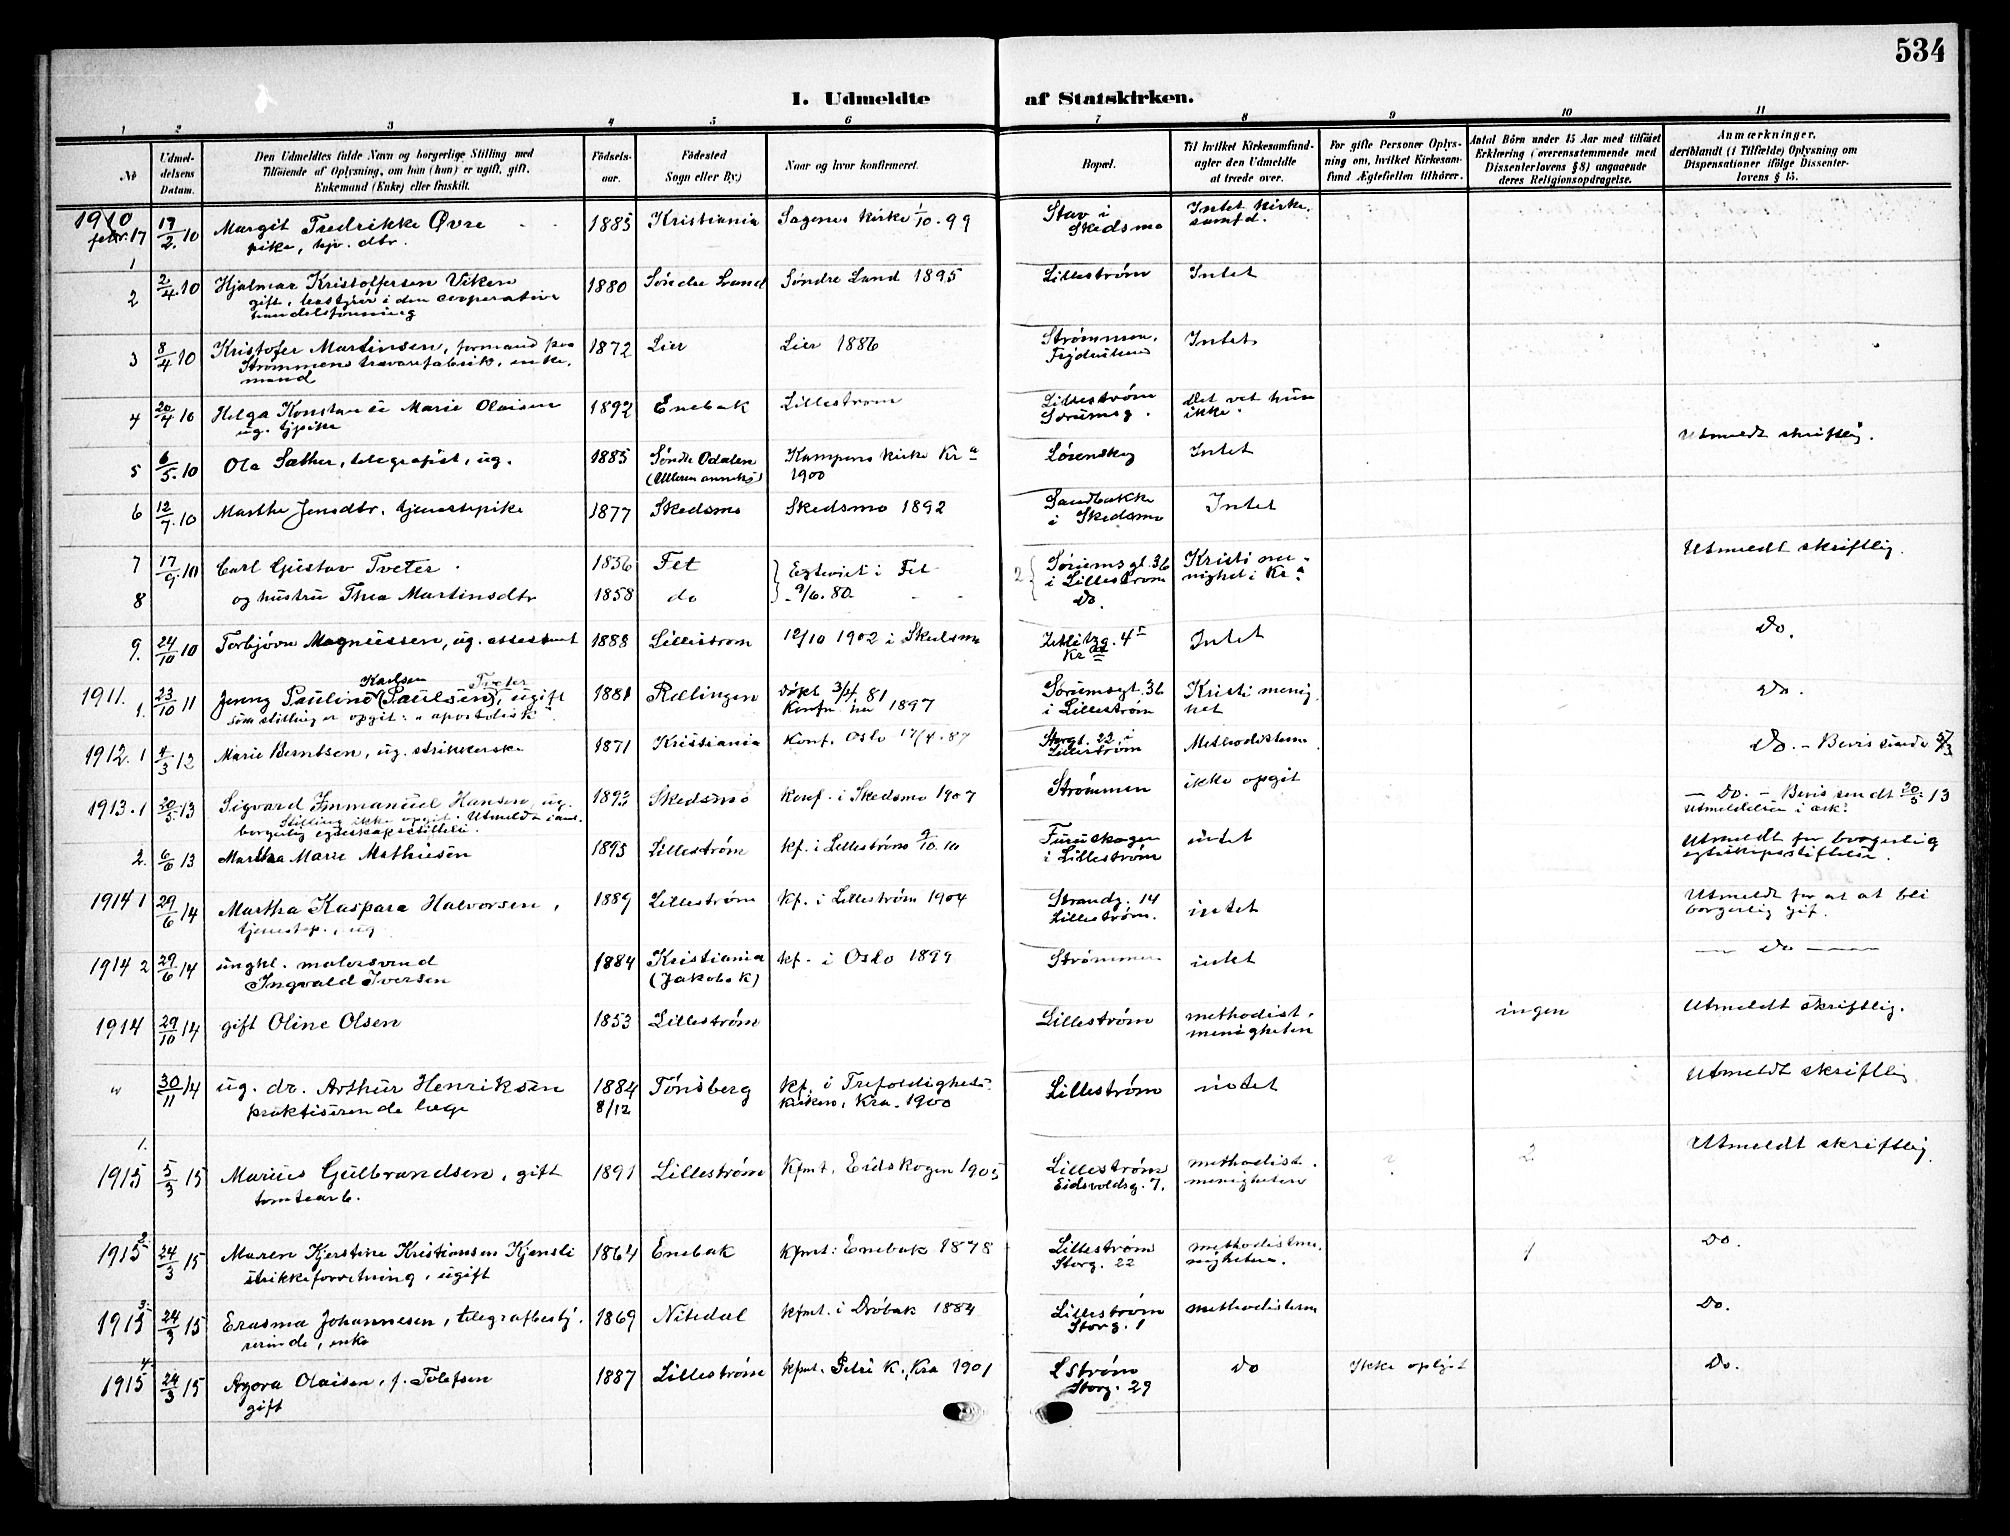 534
I. Udmeldte af Statskirken.
1 2 3 4 5 6 7 8 9 10 11
No
Udmeldelsens Datum.
Den Udmeldtes fulde Navn og borgerlige Stilling med
Tilföiende af Oplysning, om han (hun) er ugift, gift,
Enkemand (Enke) eller fraskilt.
Födselsaar.
Födested
Sogn eller By.)
Naar og hvor konfirmeret.
Bopæl.
Til hvilket Kirkesamfund
agter den Udmeldte
at træde over.
For gifte Personer Oplysning om, hvilket Kirkesamfund Ægtefællen tilhörer.
Antal Börn under 15 Aar med tilföiet
Erklæring (overensstemmende med
Dissenterlovens § 8) angaaende
deres Religionsopdragelse.
Anmærkninger,
deriblandt (i Tilfælde) Oplysning om
Dispensationer ifölge Dissenterlovens § 15.
1910
febr. 17
1 17/2.10 Margit Fredrikke Øvre 1885 Kristiania Sagenes Kirke 1/10.99 Stav i Intet kirke.
pike, hjv. dtr. Skedsmo samfd.
2 2/4.10 Hjalmar Kristoffersen Viken 1880 Søndre Land Søndre Land 1895 Lillestrøm Intet
gift, bestyrer i den cooperative
handelsforening
3 8/4 10 Kristofer Martinsen, formand paa 1872 Lier Lier 1886 Strømmen, Intet
Strømmens trævarefabrik, enke.
mand
4 20/4 10 Helga Konstance Marie Olaisen 1892 Enebak Lillestrøm Lillestrøm Det vet hun
ug. tj.pike Sørumsg. ikke.
5 6/5.10 Ola Sæther, telegrafist, ug. 1885 Søndre Odalen Kampens kirke Kra Lørenskog Intet Utmeldt skriftlig.
(Ulleren anneks) 1900
6 12/7.10 Marthe Jensdtr, tjenestepike 1877 Skedsmo Skedsmo 1892 Sandbakke Intet
i Skedsmo
7 17/9.10 Carl Gustav Tveter 1836 Fet Egteviet i Fet 2 Sørumsgt. 36 Kristi me- Utmeldt skriftlig.
8 og hustru Thea Martinsdtr 1858 do 9/6.80 i Lillestrøm nighet i Kra
Do.
9. 24/10 10 Torbjørn Magnussen, ug. assistent 1888 Lillestrøm 12/10 1902 i Skedsmo Zetlitzg. 4 Intet Do.
Kra
1911. Karlsen Tveter
1. 23/10 11 Jenny Pauline (Paulsen), ugift 1881 Rælingen døbt 3/4 81 Sørumsgt. 36 Kristi menig. Do.
som stilling er opgit: "apostolisk" Konf. 1897 i Lillestrøm het
1912. 1 4/3 12 Marie Berntsen, ug. strikkerske 1871 Kristiania Konf. Oslo 17/4.87 Storgt. 22 i Methodisterne Do. - Bevis sendt 5/3
Lillestrøm
1913.1 20/5 13 Sigvard Immanuel Hansen, ug. 1893 Skedsmo Konf. i Skedsmo 1907 Strømmen ikke opgit - Do. - Bevis sendt 20/5.13
Stilling ikke opgit. Utmeldt i anl. Utmeldelse i ark.
borgerlig egteskapsstiftelse.
2. 6/6 13 Martha Marie Mathiesen 1895 Lillestrøm Kf. i Lillestrøm 9/10.10 Furuskogen intet Utmeldt for borgerlig
i Lillestrøm egteskapsstiftelse.
1914 1 29/6 14 Martha Kaspara Halvorsen, 1889 Lillestrøm Kf. i Lillestrøm 1904 Strandg. 14 intet Utmeldt for at at bli
tjenestep., ug Lillestrøm. borgerlig gif.
1914 2 29/6 14 ungkl. malersvend 1884 Kristiania kf. i Oslo 1899 Strømmen intet — Do —
Ingvald Iversen (Jakobs K)
1914 29/10 14 gift Oline Olsen 1853 Lillestrøm Lillestrøm methodist. ingen Utmeldt skriftlig.
menigheten
" 30/11 14 ug. dr. Arthur Henriksen 1884 Tønsberg Kf. i Trefoldigheds- Lillestrøm intet Utmeldt skriftlig
praktiserende læge 8/12 kirken, Kra. 1900
1.
1915 5/3 15 Marius Gulbrandsen, gift 1891 Lillestrøm Kfmt. Eidskogen 1905 Lillestrøm methodist. ? 2 Utmeldt skriftlig
tomtearb. Eidsvoldsg. 7. menigheten
2.
1915 24/3 15 Maren Kjerstine Kristiansen Kjensli 1864 Enebak Kfmt: Enebak 1878 Lillestrøm methodistme. 1 Do.
strikkeforretning, ugift Storg. 22 nigheten.
3.
1915 24/3 15 Erasma Johannesen, telegrafbesty. 1869 Nitedal Kfmt. i Drøbak 1884 Lillestrøm methodisterne Do.
rerinde, enke Storg. 1
4.
1915 24/3 15 Agora Olaisen, f. Tolefsen 1887 Lillestrøm Kfmt. Petri K., Kra 1901 LStrøm Do Ikke oplyst Do.
gift Storg. 29